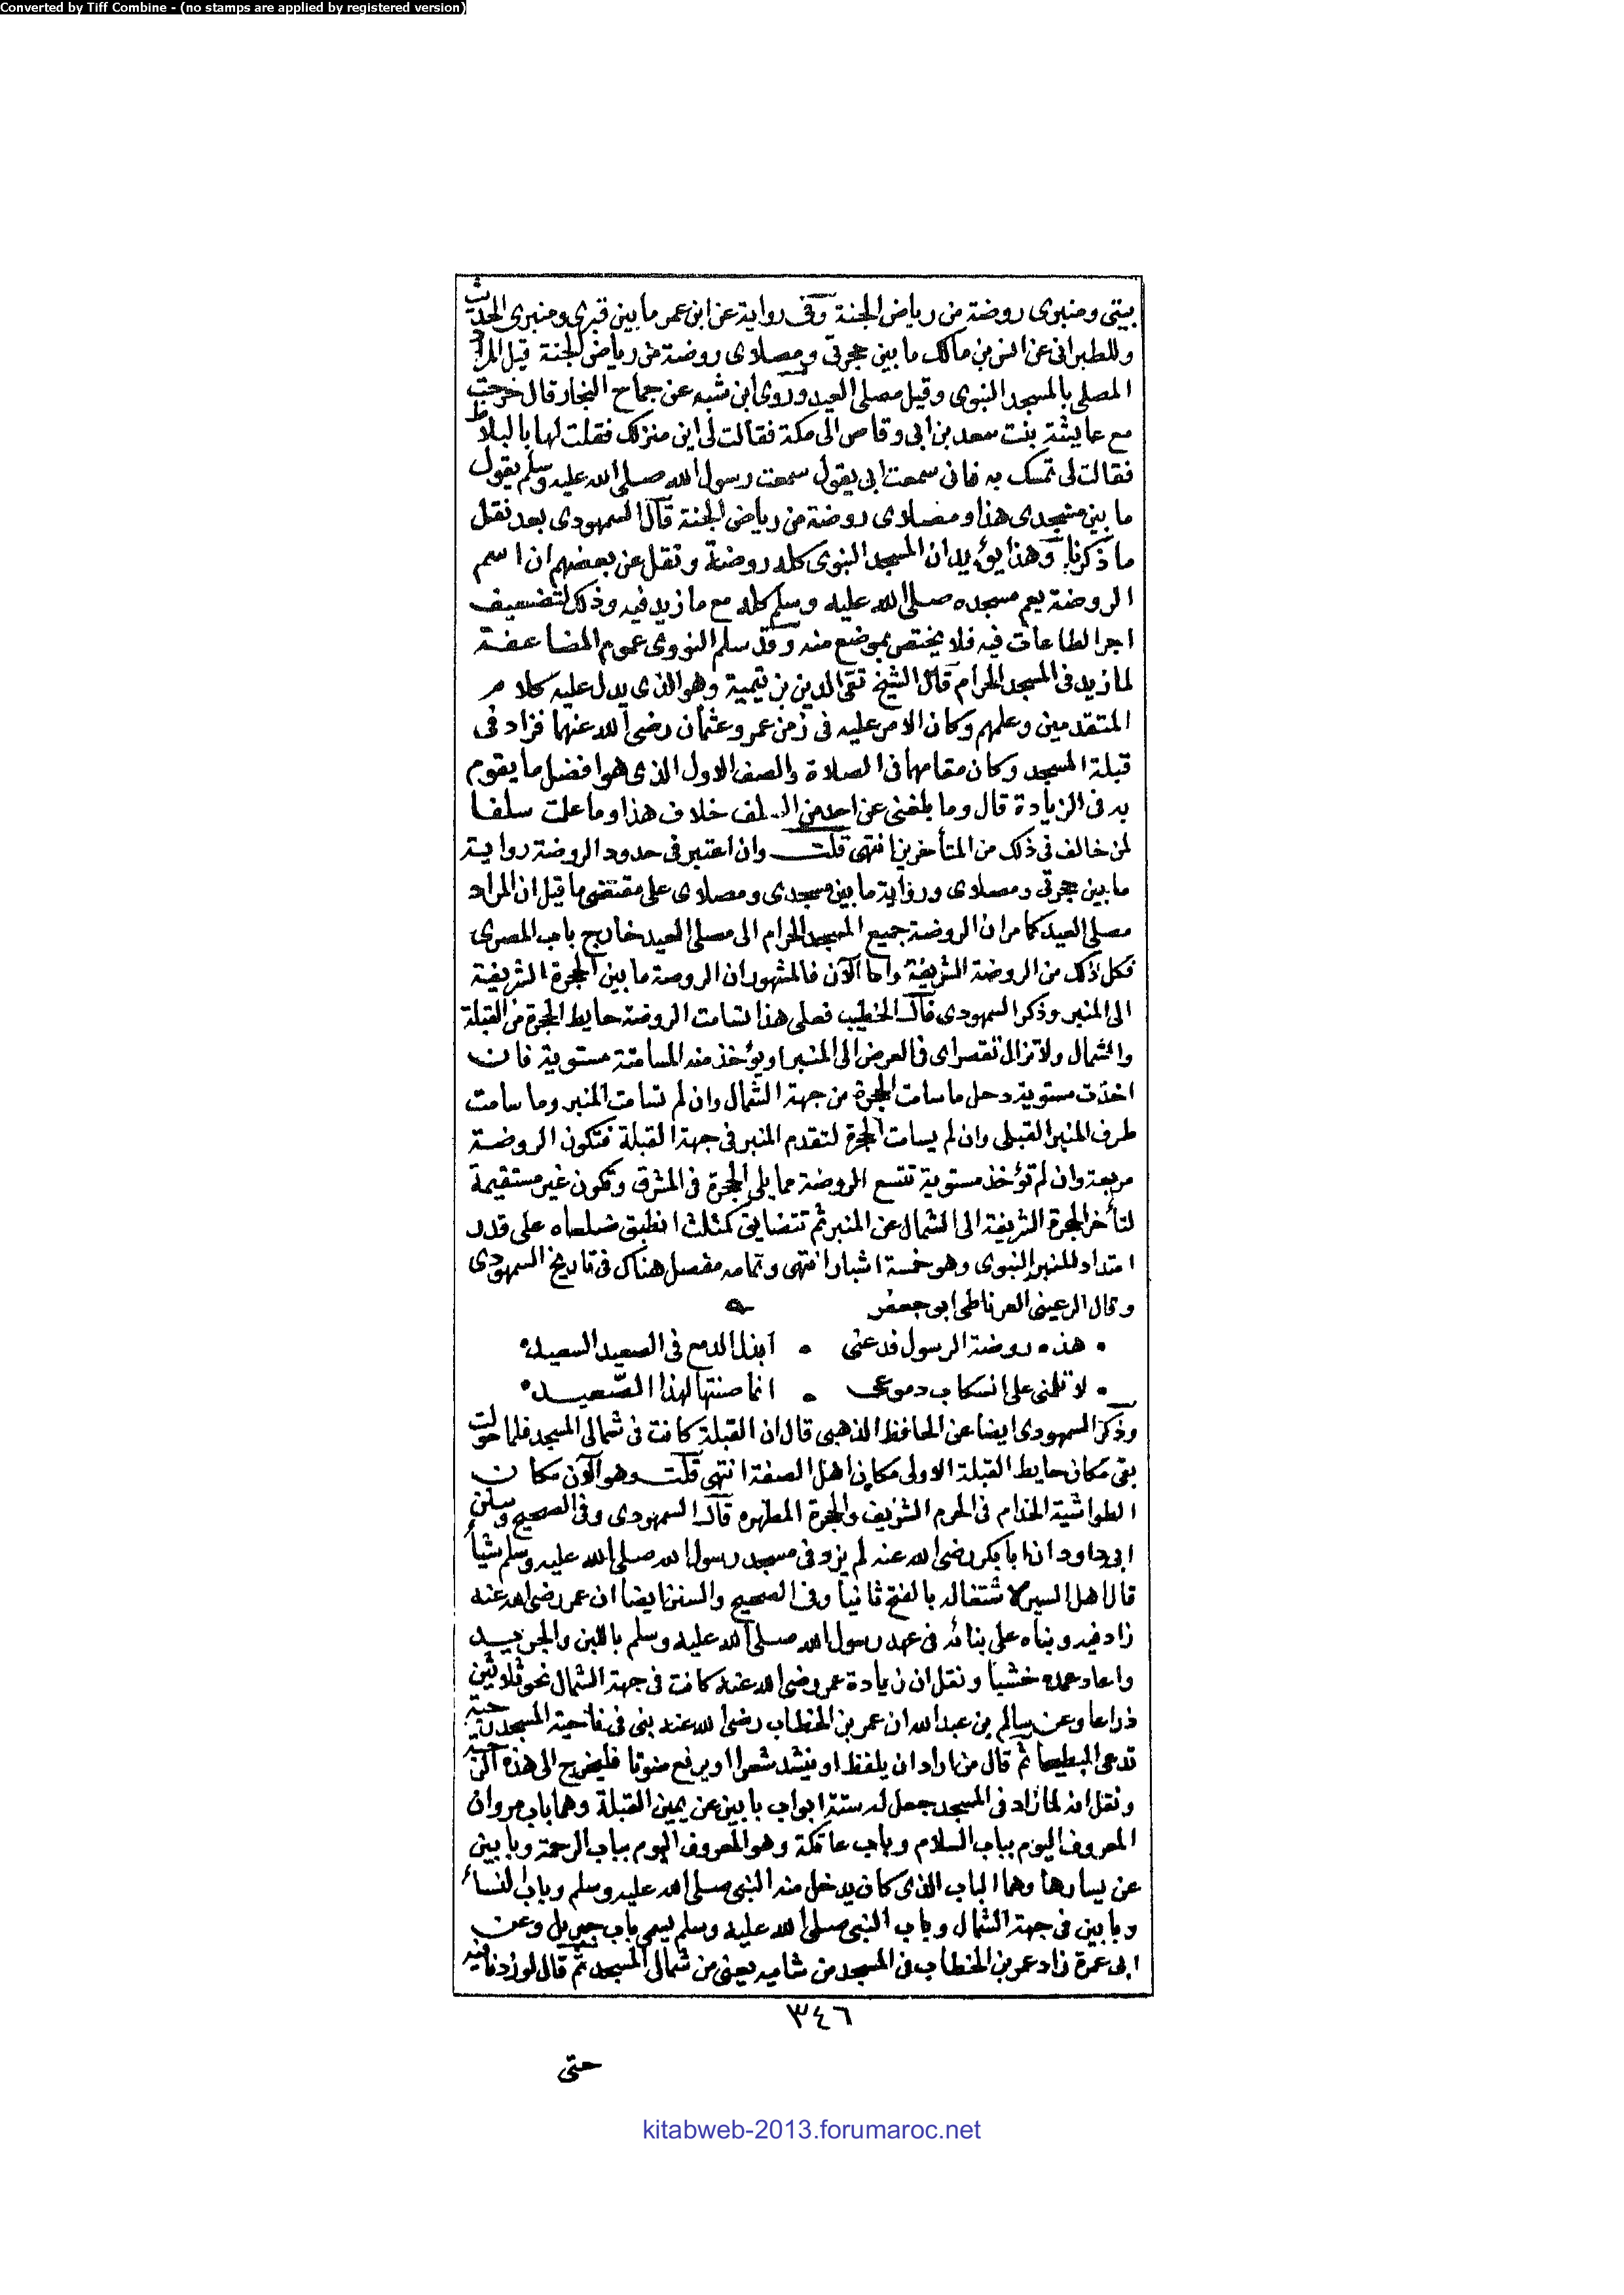 Converted by Tiff Combine - (no stamps are applied by registered version)
بيتى ومنبرى روضة من رياض الجنة وفى رواية عن ابن عمر ما بين قبرى ومنبرى الحديث
وللطبرانى عن انس بن مالك ما بين حجرتى ومصلاى روضة من رياض الجنة قيل المراد
المصلى بالمسجد النبوى وقيل مصلى العيد وروى ابن شبه عن جماح النجار قال خرجت
مع عايشة بنت سعد بن ابى وقاص الى مكة فقالت لى اين منزلك فقلت لها بالبلاط
فقالت لى تمسك به فانى سمعت ابى يقول سمعت رسول الله صلى الله عليه وسلم يقول
ما بين مسجدى هذا ومصلاى روضة من رياض الجنة قال السمهودى بعد نقل
ما ذكرناه وهذا يؤيد ان المسجد النبوى كله روضة ونقل عن بعضهم ان اسم
الروضة يعم مسجده صلى الله عليه وسلم كله مع ما زيد فيه وذلك لتضعيف
اجر الطاعات فيه فلا يختص بموضع منه وقد سلم النووى عموم المضاعفة
لما زيد فى المسجد الحرام قال الشيخ تقى الدين بن تيمية وهو الذى يدل عليه كلام
المتقدمين وعلمهم وكان الامر عليه فى زمن عمر وعثمان رضى الله عنهما فزاد فى
قبلة المسجد وكان مقامهما فى الصلاة والصف الاول الذى هو افضل ما يقوم
به فى الزيادة قال وما بلغنى عن احد من السلف خلاف هذا وما علمت سلفا
لمن خالف فى ذلك من المتأخرين انتهى قلت وان اعتبر فى حدود الروضة رواية
ما بين حجرتى ومصلاى ورواية ما بين مسجدى ومصلاى على مقتضى ما قيل ان المراد
مصلى العيد كما مر ان الروضة جميع المسجد الحرام الى مصلى العيد خارج باب المصرى
فكل ذلك من الروضة الشريفة واما الآن فالمشهور ان الروضة ما بين الحجرة الشريفة
الى المنبر وذكر السمهودى قال الخطيب فعلى هذا تسامت الروضة حايط الحجرة من القبلة
والشمال ولا تزال تقصر اى فى العرض الى المنبر او يؤخذ منه المسامتة مستوية فان
اخذت مستوية دخل ما سامت الحجرة من جهة الشمال وان لم تسامت المنبر وما سامت
طرف المنبر القبلى وان لم يسامت الحجرة لتقدم المنبر فى جهة القبلة فتكون الروضة
مربعة وان لم تؤخذ مستوية تتسع الروضة مما يلى الحجرة فى المشرق وتكون غير مستقيمة
لتأخر الحجرة الشريفة الى الشمال عن المنبر ثم تتضايق كمثلث انطبق ضلعاه على قدر
امتداد المنبر النبوى وهو خمسة اشبار انتهى وتمامه مفصل هناك فى تاريخ السمهودى
وقال الرعينى الغرناطى ابو جعفر
هذه روضة الرسول فدعنى ابذل الدمع فى الصعيد السعيد
لا تلمنى على انسكاب دموعى انما صنتها لهذا الصعيد
وذكر السمهودى ايضا عن الحافظ الذهبى قال ان القبلة كانت فى شمالى المسجد فلما حولت
بقى مكان حايط القبلة الاولى مكان اهل الصفة انتهى قلت وهو الآن مكان
الطواشية الخدام فى الحرم الشريف والحجرة المطهره قال السمهودى وفى الصحيح وسنن
ابى داود ان ابا بكر رضى الله عنه لم يزد فى مسجد رسول الله صلى الله عليه وسلم شيأ
قال اهل السير لاشتغاله بالفتح ثانيا وفى الصحيح والسنن ايضا ان عمر رضى الله عنه
زاد فيه وبناه على بنائه فى عهد رسول الله صلى الله عليه وسلم باللبن والجريد
واعاد عمده خشبا ونقل ان زيادة عمر رضى الله عنه كانت فى جهة الشمال نحو ثلاثين
ذراعا وعن سالم بن عبد الله ان عمر بن الخطاب رضى الله عنه بنى فى ناحية المسجد رحبة
تدعى البطيحا ثم قال من اراد ان يلفظ او ينشد شعرا او يرفع صوتا فليخرج الى هذه الرحبة
ونقل انه لما زاد فى المسجد جعل له ستة ابواب بابين عن يمين القبلة وهما باب مروان
المعروف اليوم بباب السلام وباب عاتكة وهو المعروف اليوم بباب الرحمة وبابين
عن يسارها وهما الباب الذى كان يدخل منه النبى صلى الله عليه وسلم وباب النساء
وبابين فى جهة الشمال وباب النبى صلى الله عليه وسلم يسمى باب جبريل وعن
ابى عمرة زاد عمر بن الخطاب فى المسجد من شاميه يعنى من شمالى المسجد ثم قال لو زدنا فيه
٣٤٦
حتى
kitabweb-2013.forumaroc.net